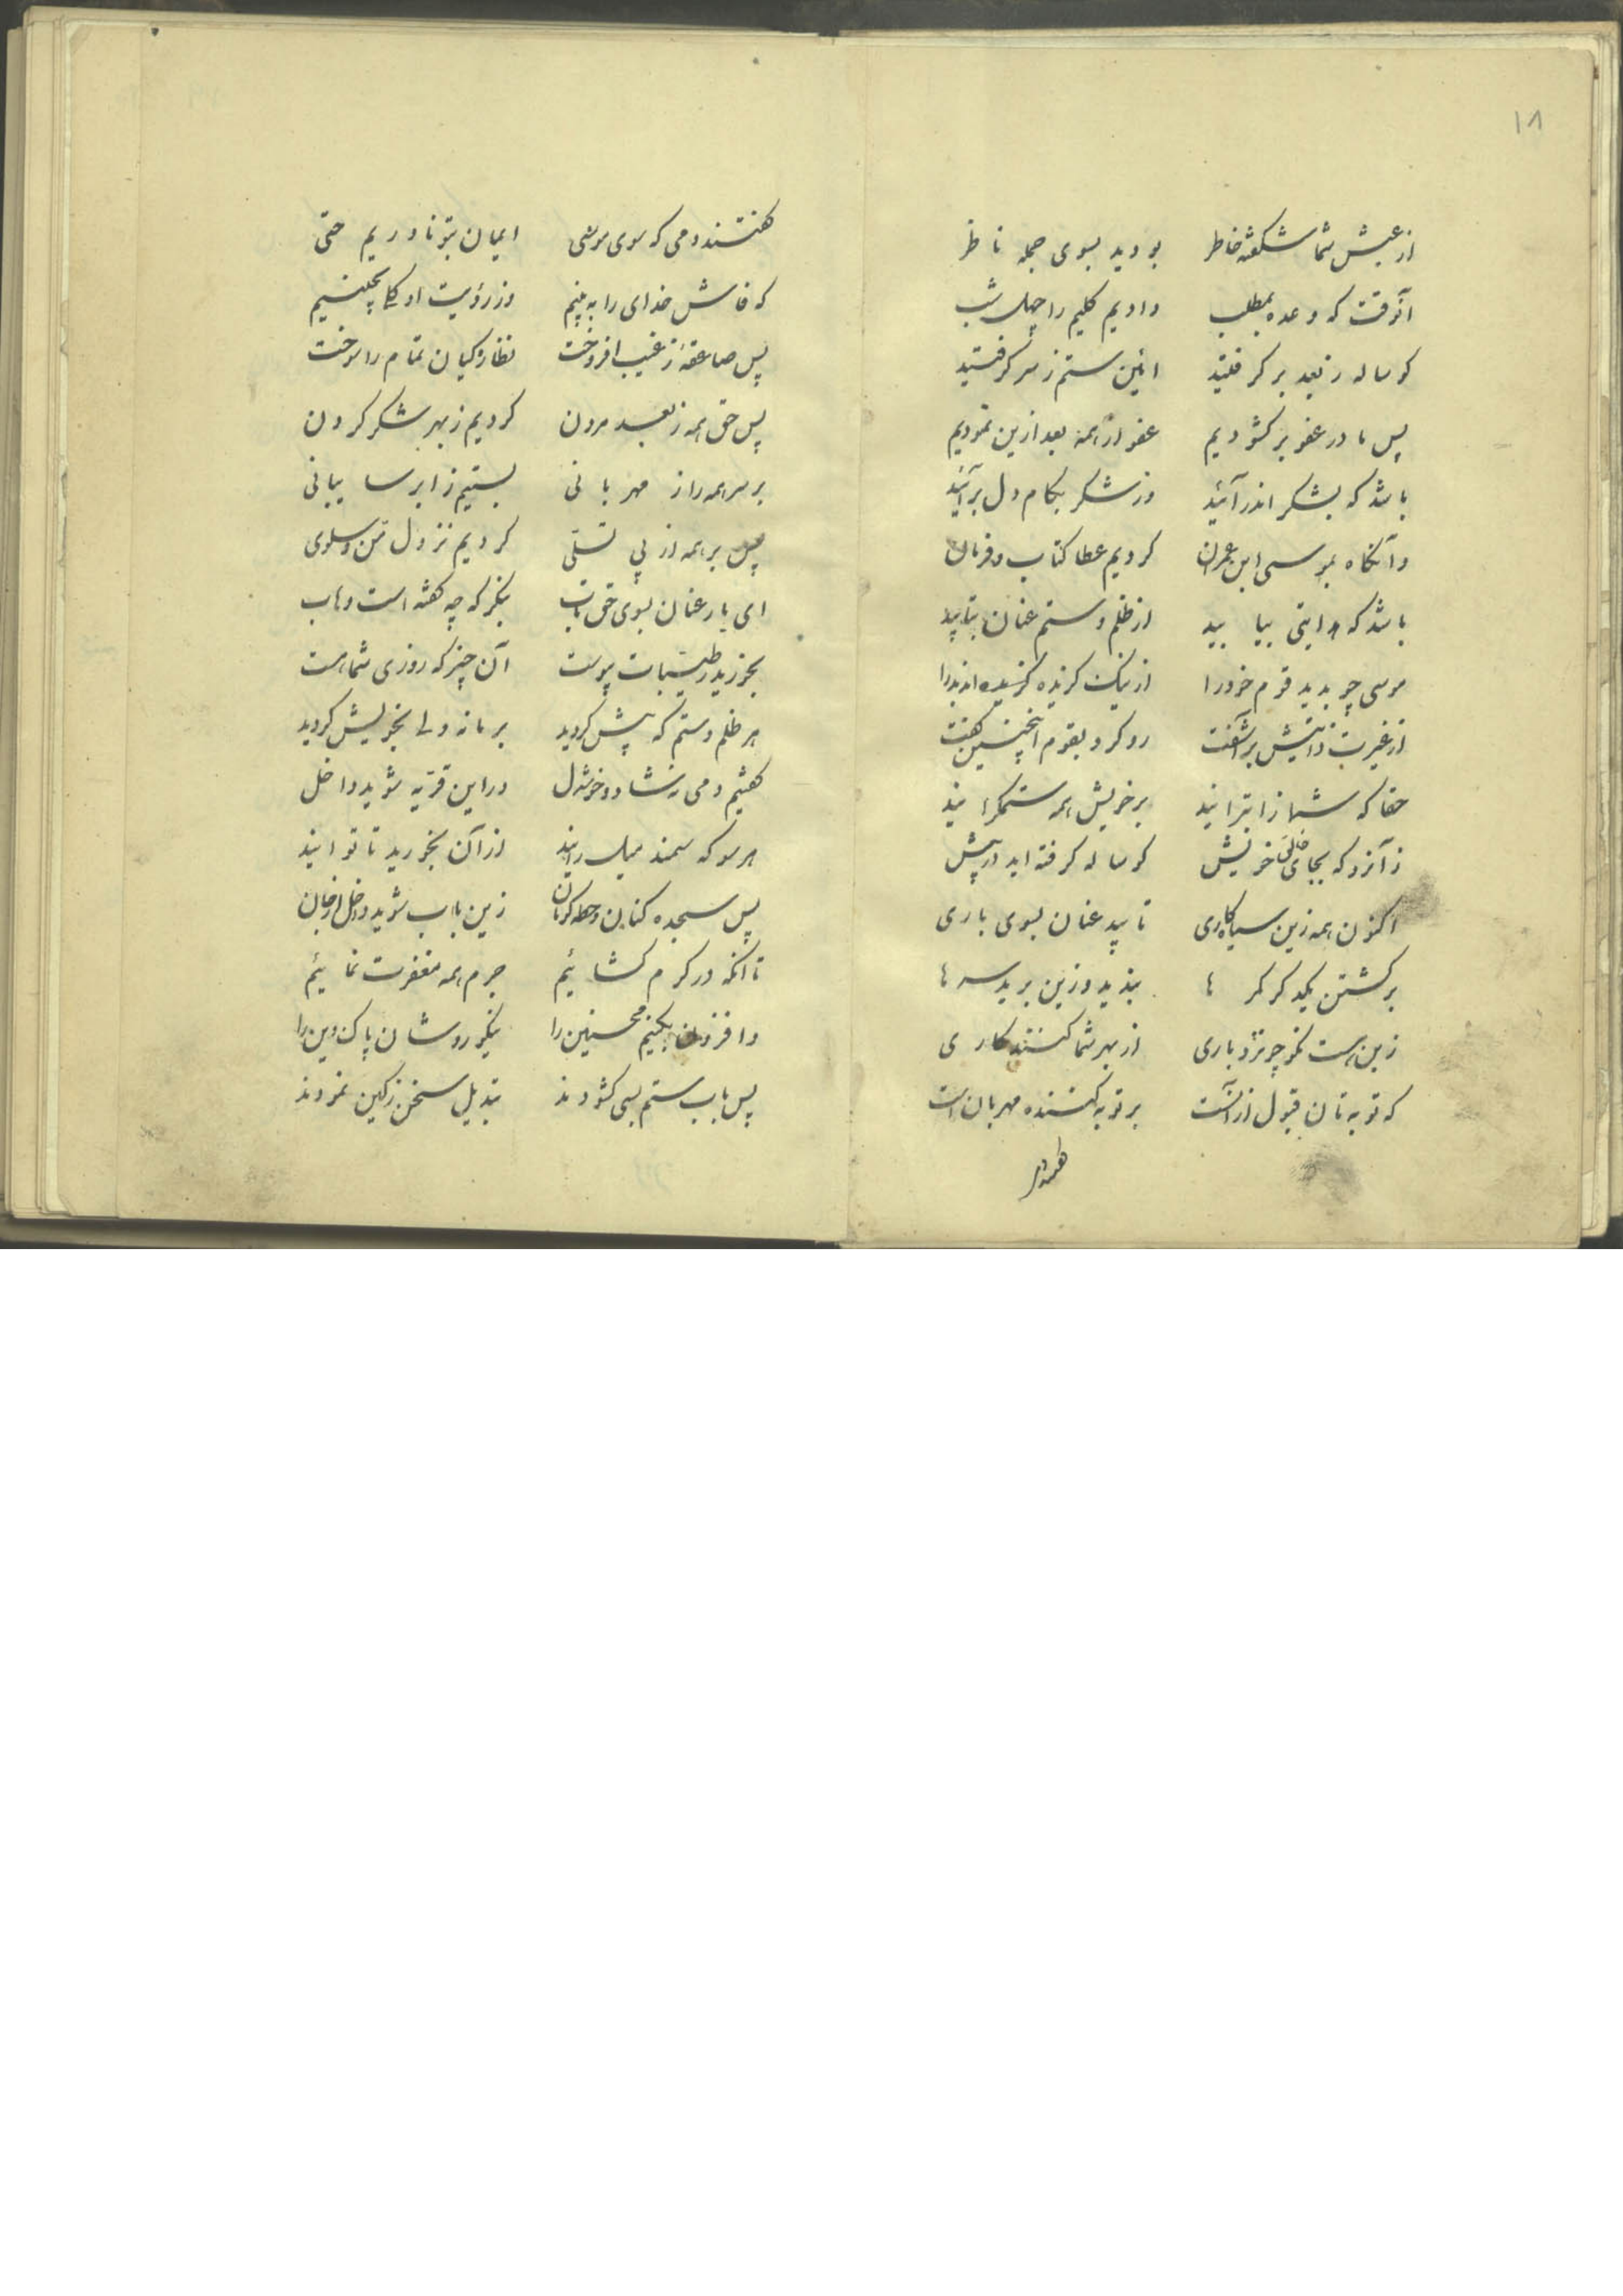 ۱۸
از عیش شما شکفته خاطر بودید بسوی جمله ناظر
آنوقت که وعده بمطلب دادیم کلیم را چهل شب
کوساله ز بعد بر کرفتید ائین ستم ز سر کرفتید
پس ما در عفو بر کشودیم عفو از همه بعد ازین نمودیم
باشد که بشکر اندر آئید وز شکر بکام دل بر آئید
وآنکاه بموسی ابن عمران کردیم عطا کتاب و فرمان
باشد که هدایتی بیابید از ظلم و ستم عنان بتابید
موسی چو بدید قوم خود را از نیک کزیده اند بد را
از غیرت آتیش بر آشفت رو کرد بقوم اینچنین کفت
حقا که شما ز ابترانید بر خویش همه ستمکرانید
ز آنرو که بجای خالق خویش کوساله کرفته اید در پیش
اکنون همه زین سیاه کاری تابید عنان بسوی باری
بر کشتن یکدکر کمر ها بندید وزین برید سر ها
زین هست نکو چو نزد باری از بهر شما کنند کاری
که توبه تان قبول از آنست بر توبه کننده مهربان است
کفتند دمی که سوی موسی ایمان بتو ناوریم حتی
که فاش خدای را به بینیم وز رؤیت او کلی بچینیم
پس صاعقهٔ ز غیب افروخت نظارکیان تمام را سوخت
پس حق همه ز بعد مردن کردیم ز بهر شکر کردن
بر سر همه را ز مهربانی بستیم ز ابر سایبانی
پس بر همه از پی تسلّی کردیم نزول منّ و سلوی
ای یار عنان بسوی حق تاب بنکر که چه کفته است وهاب
بخورید ز طیّبات پیوست آن چیز که روزی شما هست
هر ظلم و ستم که پیش کردید بر ما نه ولی بخویش کردید
کفتیم دمی که شاد و خوشدل در این قریه شوید داخل
هر سو که سمند میل رانید از آن بخورید تا توانید
پس سجده کنان و حطه کویان زین باب شوید داخل از جان
تا آنکه در کرم کشائیم جرم همه مغفرت نمائیم
وافزون بکنیم محسنین را نیکو روشان پاک دین را
پس باب ستم بسی کشودند تبدیل سخن ز کین نمودند